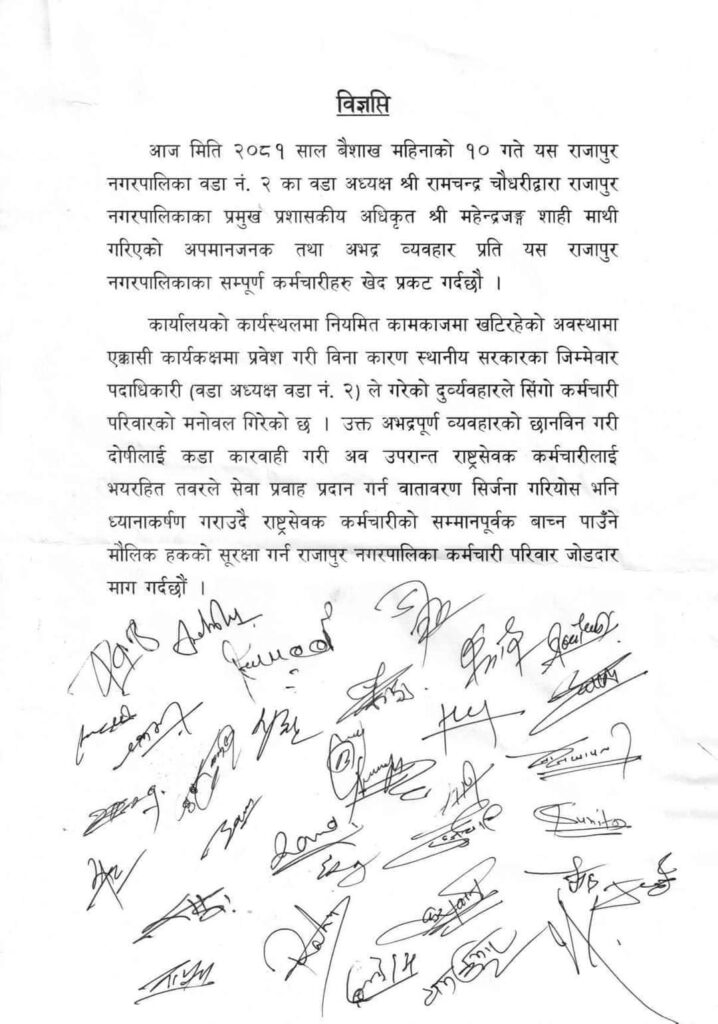 विज्ञप्ति
आज मिति २०८१ साल बैशाख महिनाको १० गते यस राजापुर
नगरपालिका वडा नं. २ का वडा अध्यक्ष श्री रामचन्द्र चौधरीद्वारा राजापुर
नगरपालिकाका प्रमुख प्रशासकीय अधिकृत श्री महेन्द्रजङ्ग शाही माथी
गरिएको अपमानजनक तथा अभद्र व्यवहार प्रति यस राजापुर
नगरपालिकाका सम्पूर्ण कर्मचारीहरु खेद प्रकट गर्दछौ ।
कार्यालयको कार्यस्थलमा नियमित कामकाजमा खटिरहेको अवस्थामा
एक्कासी कार्यकक्षमा प्रवेश गरी विना कारण स्थानीय सरकारका जिम्मेवार
पदाधिकारी (वडा अध्यक्ष वडा नं. २) ले गरेको दुर्व्यवहारले सिंगो कर्मचारी
परिवारको मनोवल गिरेको छ । उक्त अभद्रपूर्ण व्यवहारको छानविन गरी
दोषीलाई कडा कारवाही गरी अव उपरान्त राष्ट्रसेवक कर्मचारीलाई
भयरहित तवरले सेवा प्रवाह प्रदान गर्न वातावरण सिर्जना गरियोस भनि
ध्यानाकर्षण गराउदै राष्ट्रसेवक कर्मचारीको सम्मानपूर्वक बाच्न पाउँने
मौलिक हकको सूरक्षा गर्न राजापुर नगरपालिका कर्मचारी परिवार जोडदार
माग गर्दछौं ।